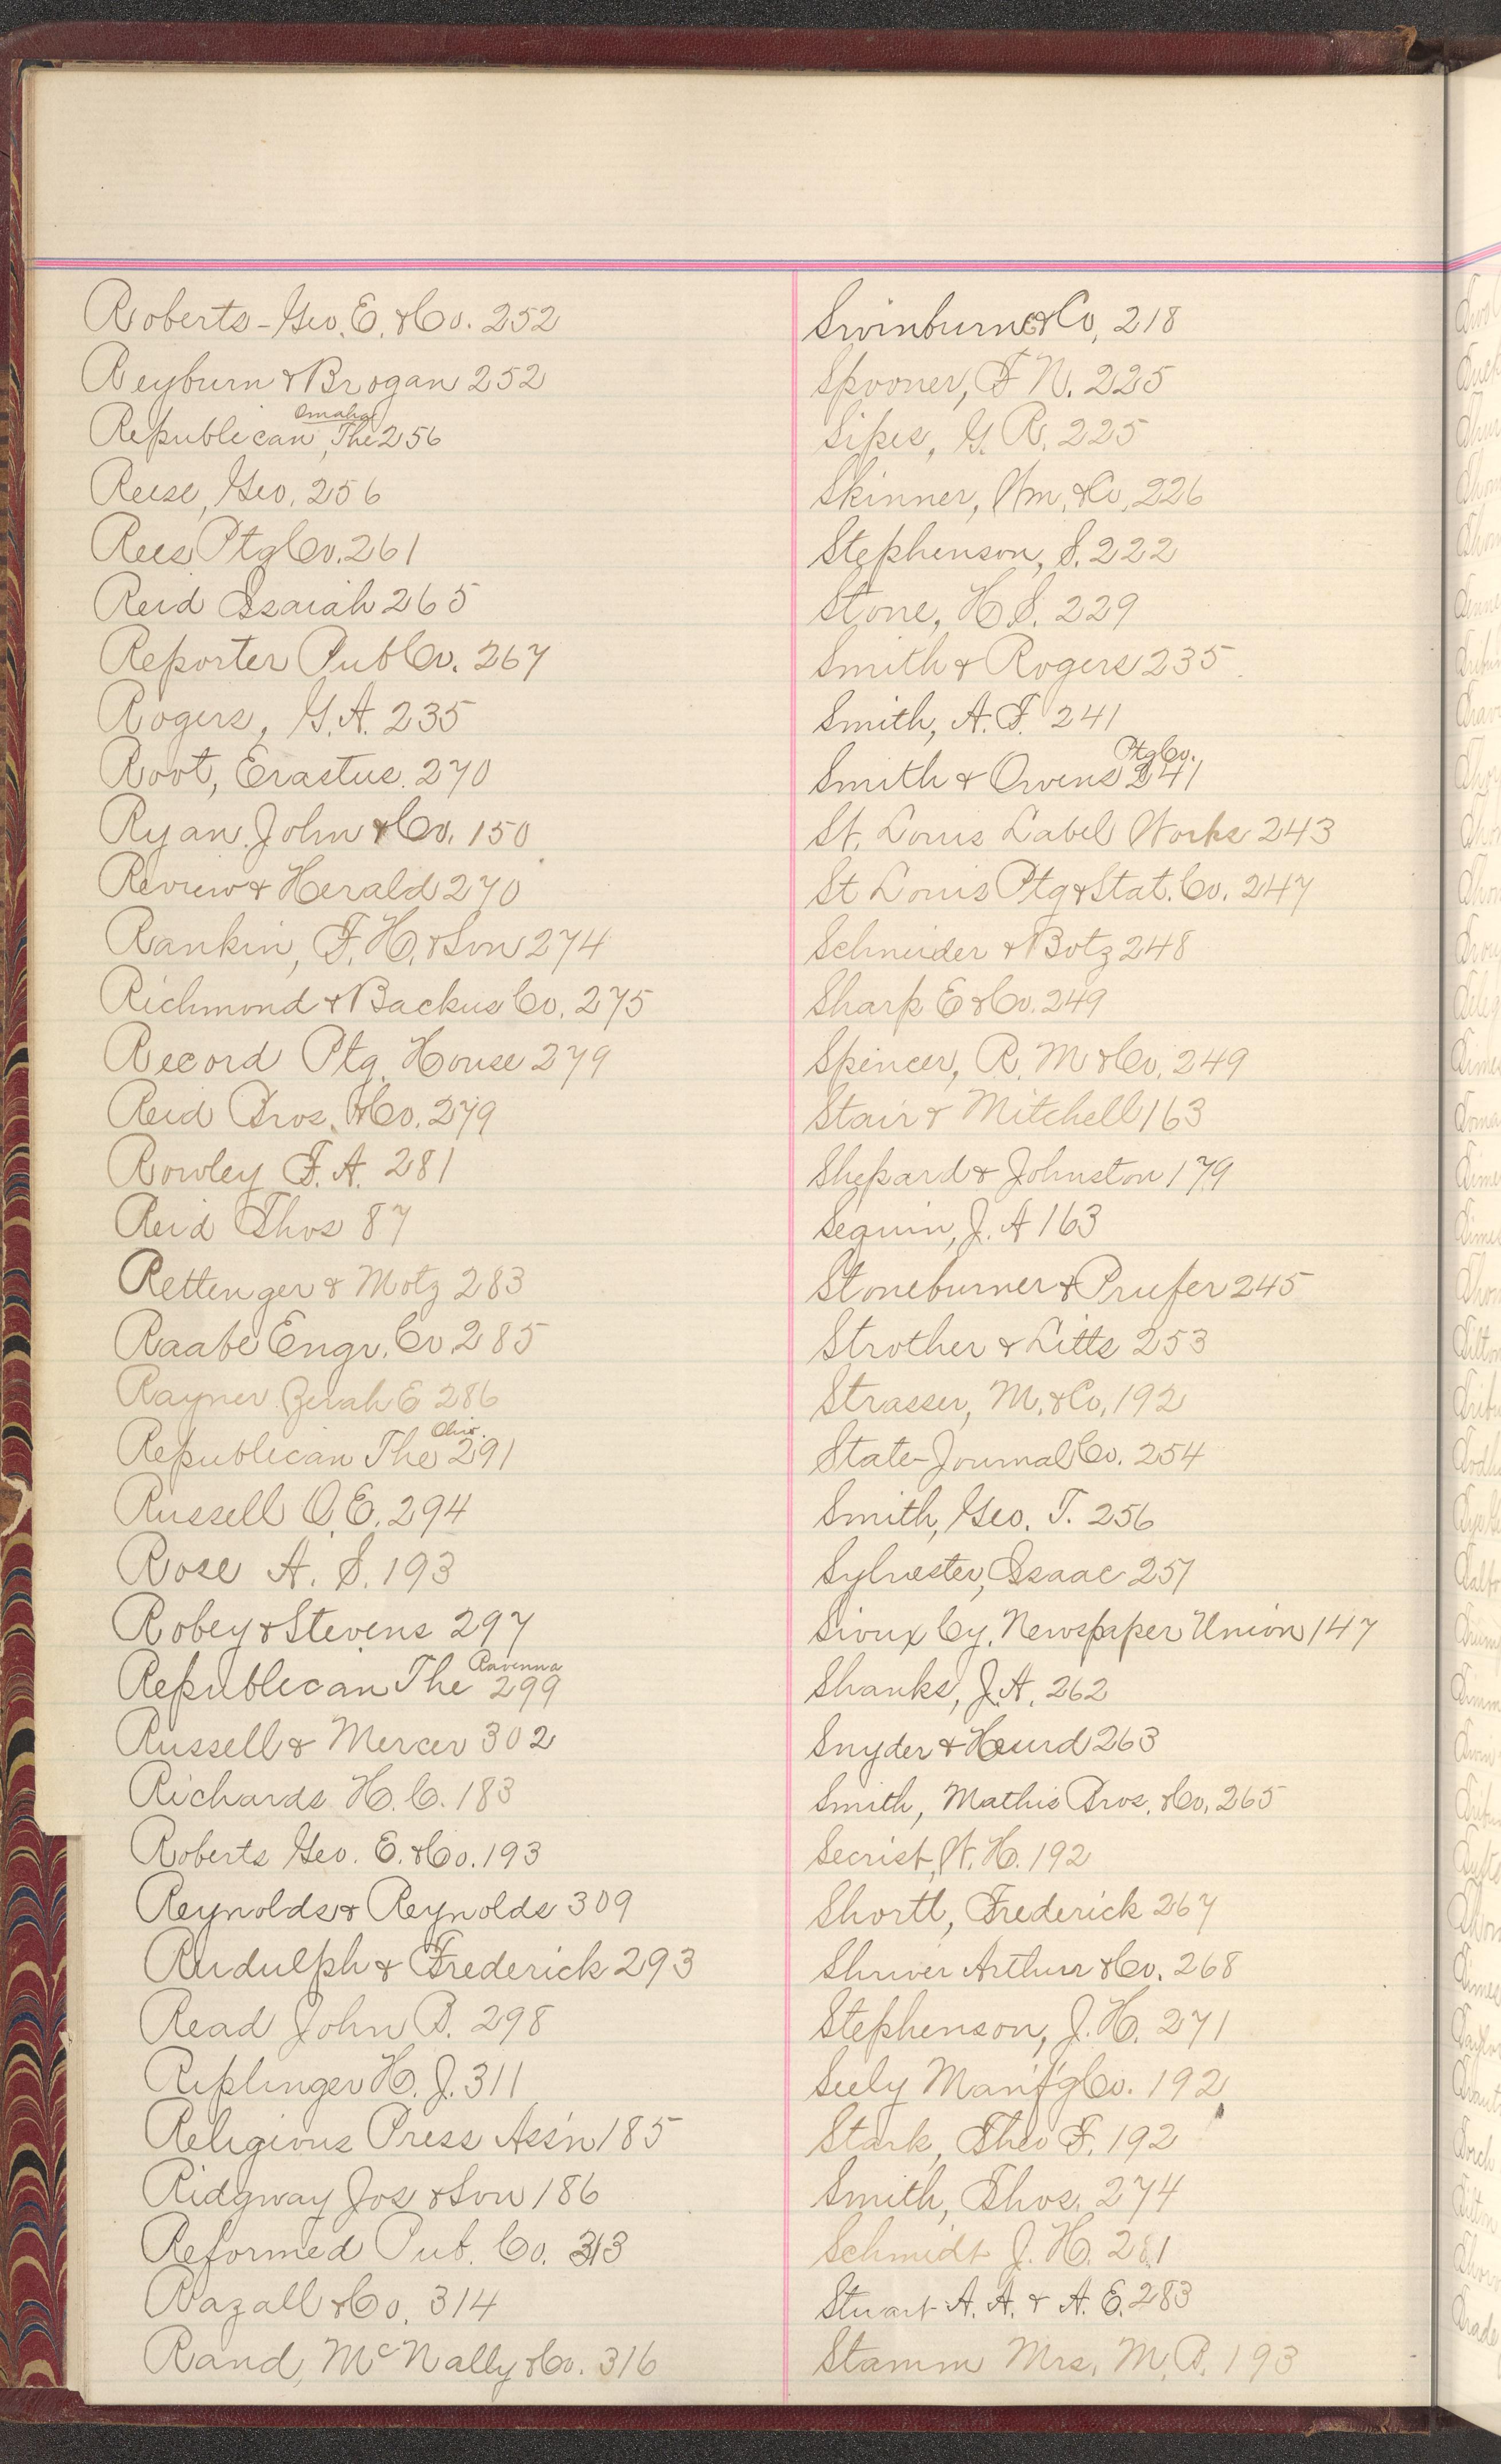 Roberts-Geo. E. & Co. 252
Reyburn & Brogan 252
Omaha
Republican, The 256
Reese, Geo. 256
Rees Ptg Co. 261
Reid Isaiah 265
Reporter Pub Co. 267
Rogers, G. A. 235
Root, Erastus. 270
Ryan. John & Co. 150
Review & Herald 270
Rankin, F. H. & Son 274
Richmond & Backus Co. 275
Record Ptg. House 279
Reid Bros. & Co. 279
Rowley F. A. 281
Reid Thos 87
Rettenger & Motz 283
Raabe Engr. Co. 285
Rayner Zerah E 286
Ohio.
Republican The 291
Russell O. E. 294
Rose A. S. 193
Robey & Stevens 297
Ravenna
Republican The 299
Russell & Mercer 302
Richards H. C. 183
Roberts Geo. E. & Co. 193
Reynolds & Reynolds 309
Rudulph & Frederick 293
Read John B. 298
Riplinger H. J. 311
Religious Press Ass'n 185
Ridgway Jos & Son 186
Reformed Pub. Co. 313
Razall & Co. 314
Rand, McNally & Co. 316
Swinburne & Co, 218
Spooner, F N. 225
Sipes, G. R. 225
Skinner, Wm, & Co, 226
Stephenson, S. 222
Stone, H S. 229
Smith & Rogers 235
Smith, A. F. 241
Ptg Co.
Smith & Owens 241
St. Louis Label Works 243
St Louis Ptg & Stat. Co. 247
Schneider & Botz 248
Sharp E & Co. 249
Spencer, R. M & Co. 249
Stair & Mitchell 163
Shepard & Johnston 179
Seguin, J. A 163
Stoneburner & Prufer 245
Strother & Litts 253
Strasser, M. & Co, 192
State-Journal Co. 254
Smith, Geo. T. 256
Sylvester, Isaac 257
Sioux Cy. Newspaper Union 147
Shanks, J. A. 262
Snyder & Heurd 263
Smith, Mathis Bros. & Co. 265
Secrist, W. H. 192
Shortt, Frederick 267
Shriver Arthur & Co. 268
Stephenson, J. H. 271
Seely Manf'g Co. 192
Stark, Theo F. 192
Smith, Thos. 274
Schmidt J. H. 281
Stuart A. A. & A. E. 283
Stamm Mrs. M. B. 193